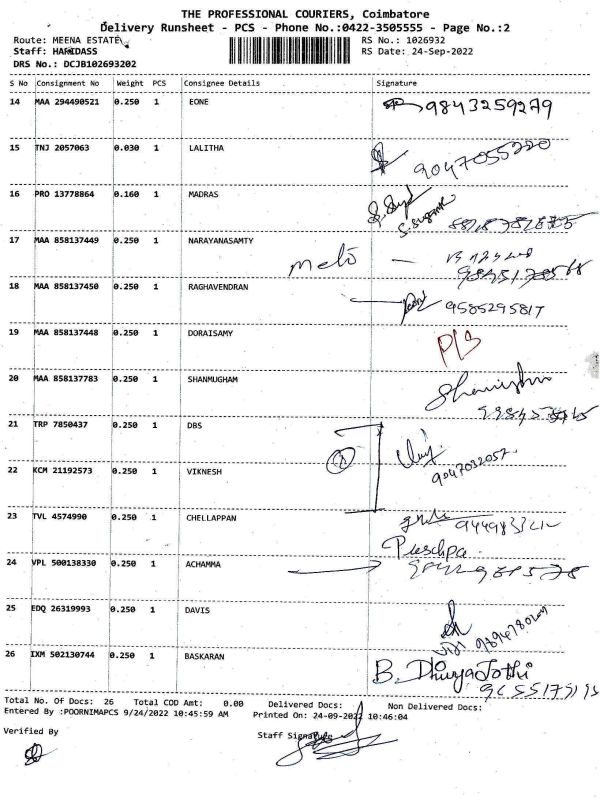 THE PROFESSIONAL COURIERS, Coimbatore
Delivery Runsheet - PCS - Phone No.:0422-3505555 - Page No.:2
Route: MEENA ESTATE
RS No.: 1026932
Staff: HARIDASS
RS Date: 24-Sep-2022
DRS No.: DCJB102693202
S No Consignment No Weight PCS Consignee Details Signature
14 MAA 294490521 0.250 1 EONE 9843259279
15 TNJ 2057063 0.030 1 LALITHA 9047055220
16 PRO 13778864 0.160 1 MADRAS
17 MAA 858137449 0.250 1 NARAYANASAMTY
18 MAA 858137450 0.250 1 RAGHAVENDRAN 9585295817
19 MAA 858137448 0.250 1 DORAISAMY
20 MAA 858137783 0.250 1 SHANMUGHAM
21 TRP 7850437 0.250 1 DBS
22 KCM 21192573 0.250 1 VIKNESH 9047032057
23 TVL 4574990 0.250 1 CHELLAPPAN
Puschpa.
24 VPL 500138330 0.250 1 ACHAMMA
25 EDQ 26319993 0.250 1 DAVIS
26 IXM 502130744 0.250 1 BASKARAN B. DhivyaJothi
Total No. Of Docs: 26 Total COD Amt: 0.00 Delivered Docs: Non Delivered Docs:
Entered By :POORNIMAPCS 9/24/2022 10:45:59 AM Printed On: 24-09-2022 10:46:04
Verified By Staff Signature